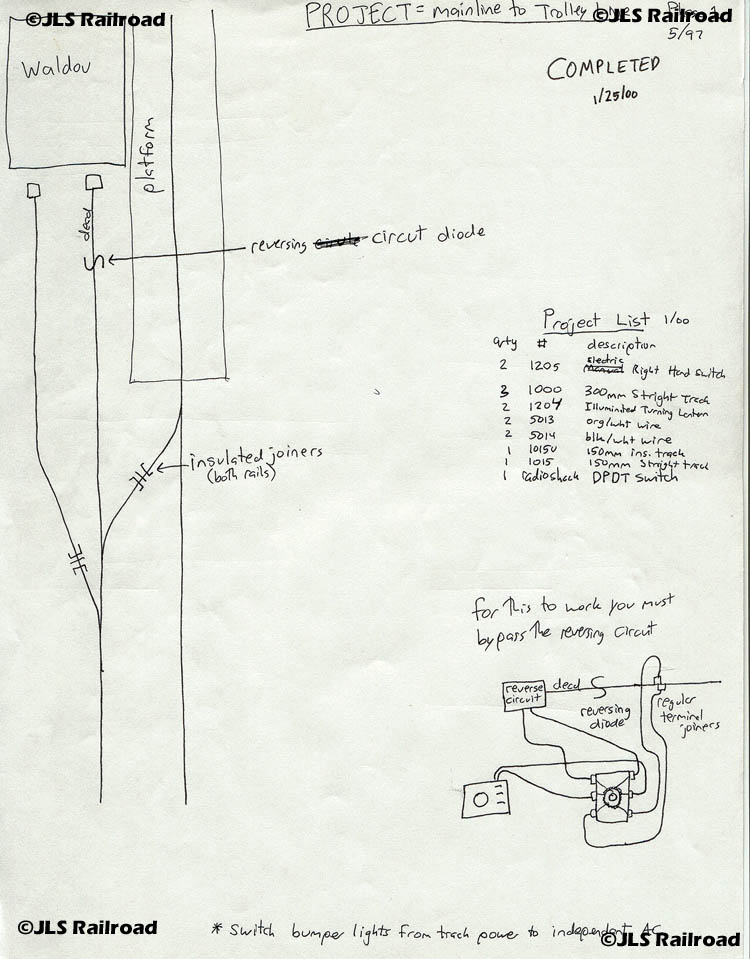 ©JLS Railroad
©JLS Railroad
PROJECT = mainline to Trolley
5/97
COMPLETED
1/25/00
Waldov
platform
dead
reversing circut diode
Project List 1/00
qrty # description
2 1205 Electric Right Hand Switch
3 1000 300mm Stright Track
2 1204 Illuminated Turning Lantern
2 5013 org/wht wire
2 5014 blk/wht wire
1 1015U 150mm ins. track
1 1015 150mm Stright track
1 radioshack DPDT Switch
insulated joiners
(both rails)
for this to work you must
bypass the reversing circuit
reverse
circuit
dead
reversing
diode
regular
terminal
joiners
©JLS Railroad
* Switch bumper lights from track power to independent AC
©JLS Railroad